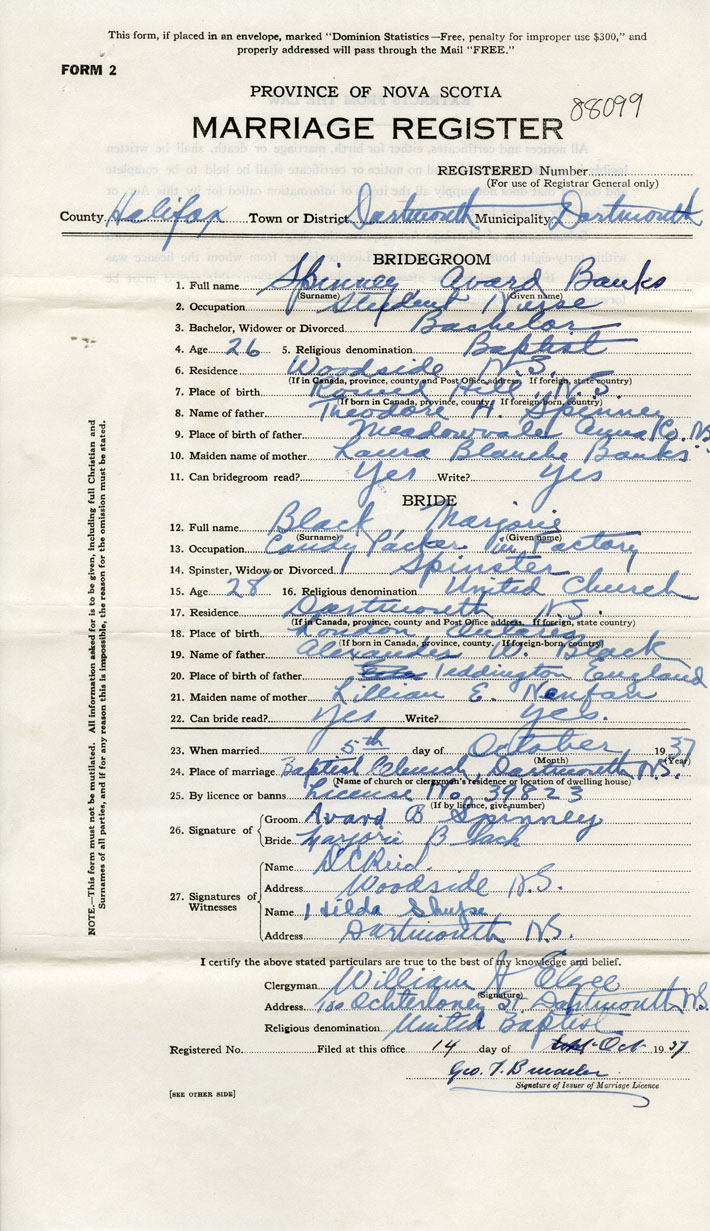 This form, if placed in an envelope, marked "Dominion Statistics—Free, penalty for improper use $300," and
properly addressed will pass through the Mail "FREE."
FORM 2
PROVINCE OF NOVA SCOTIA
88099
MARRIAGE REGISTER
REGISTERED Number
(For use of Registrar General only)
County Halifax Town or District Dartmouth Municipality Dartmouth
BRIDEGROOM
1. Full name Spinney Avard Banks
(Surname) (Given name)
2. Occupation Student Nurse
3. Bachelor, Widower or Divorced Bachelor
4. Age 26 5. Religious denomination Baptist
6. Residence Woodside N.S.
(If in Canada, province, county and Post Office address. If foreign, state country)
7. Place of birth Round Hill N.S.
(If born in Canada, province, county. If foreign-born, country)
8. Name of father Theodore H. Spinney
9. Place of birth of father Meadowvale Anna Co. N.S
10. Maiden name of mother Laura Blanche Banks
11. Can bridegroom read? Yes Write? Yes
BRIDE
12. Full name Black Marjorie
(Surname) (Given name)
13. Occupation Candy Packer in Factory
14. Spinster, Widow or Divorced Spinster
15. Age 28 16. Religious denomination United Church
17. Residence Dartmouth N.S.
(If in Canada, province, county and Post Office address. If foreign, state country)
18. Place of birth London
(If born in Canada, province, county. If foreign-born, country)
19. Name of father Alexander W. Black
20. Place of birth of father Teddington England
21. Maiden name of mother Lillian E.
22. Can bride read? Yes Write? Yes.
23. When married 5th day of October 1937
(Month) (Year)
24. Place of marriage Baptist Church, Dartmouth N.S.
(Name of church or clergyman's residence or location of dwelling house)
25. By licence or banns License No. 39823
(If by licence, give number)
26. Signature of Groom Avard B Spinney
Bride Marjorie Black
27. Signatures of Witnesses Name D C Reid.
Address Woodside N.S.
Name Hilda Shupe
Address Dartmouth N.S.
I certify the above stated particulars are true to the best of my knowledge and belief.
Clergyman William H Elgee
(Signature)
Address 100 Ochterloney St. Dartmouth N.S.
Religious denomination United Baptist
Registered No. Filed at this office 14 day of Oct. 1937
Geo. T.
Signature of Issuer of Marriage Licence
[SEE OTHER SIDE]
NOTE.—This form must not be mutilated. All information asked for is to be given, including full Christian and
Surnames of all parties, and if for any reason this is impossible, the reason for the omission must be stated.